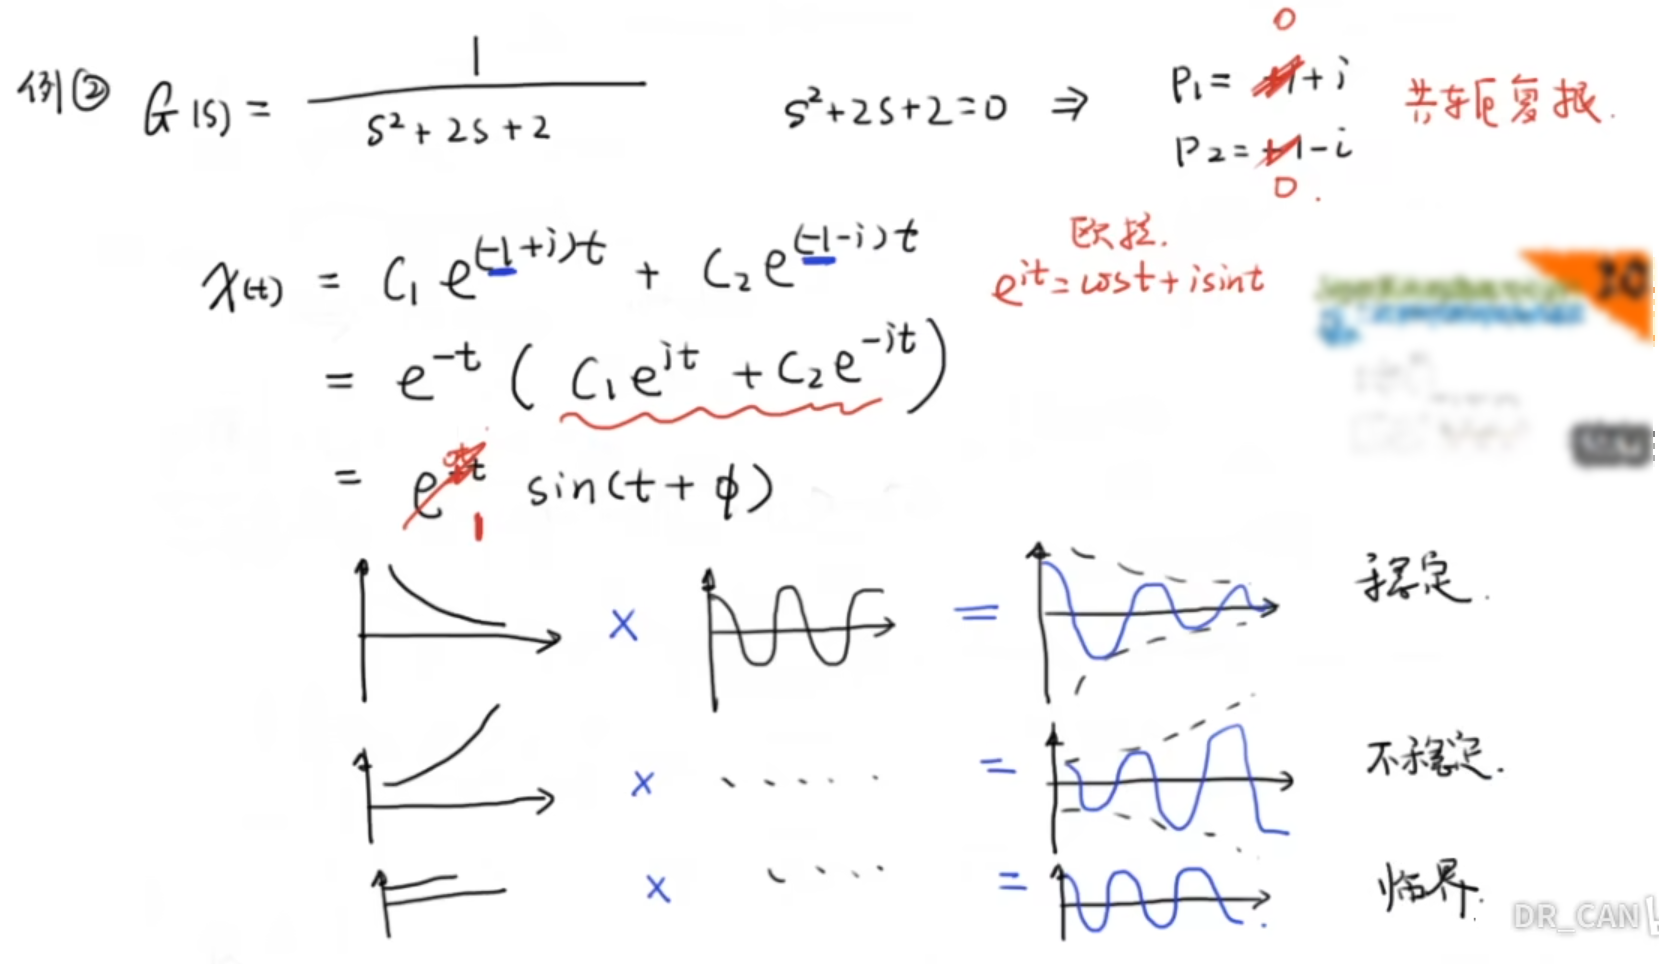 例② G(s) = 1 / (s²+2s+2)
s²+2s+2=0 ⇒
0
P₁= +i
P₂= -i
0
共轭复根.
x(t) = C₁e^(-1+i)t + C₂e^(-1-i)t
欧拉.
e^it=cost+isint
= e^-t ( C₁e^it + C₂e^-it )
= e^-t sin(t+φ)
1
× = 稳定.
× ····· = 不稳定.
× ···· = 临界.
30
DR_CAN